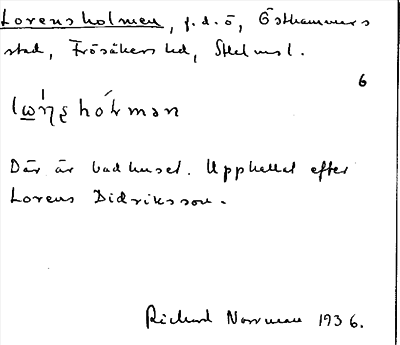 Lorensholmen, f.d. ö, Östhammars
stad, Frösåkers hd, Sthlms l.
6
Där är badhuset. Uppkallat efter
Lorens Didriksson.
Richard Norrman 1936.